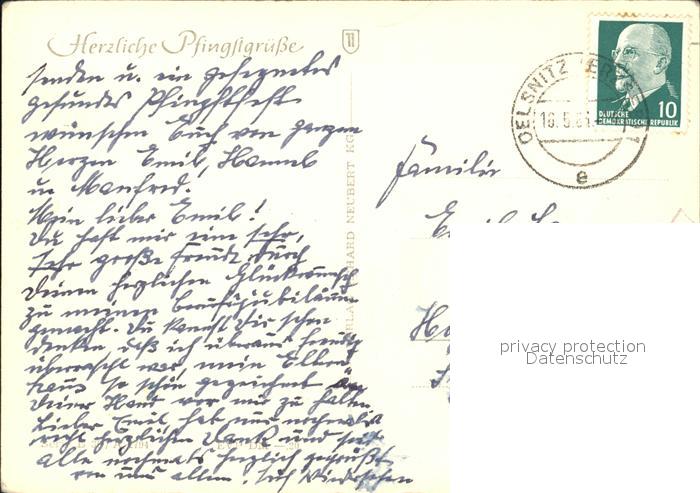 Herzliche Pfingstgrüße
senden u. ein gesegnetes
gesundes Pfingstfest
wünschen Euch von ganzem
Herzen Emil,
u. Manfred.
Mein lieber Emil!
Du hast mir eine sehr,
sehr große Freude durch
Deinen herzlichen Glückwunsch
zu meinem Berufsjubiläum
gemacht. Du kannst Dir schon
denken daß ich überaus freudig
überrascht war, mein Eltern-
haus so schön gezeichnet
Deiner Hand vor mir zu halten.
Lieber Emil, hab nun nochmals
recht herzlichen Dank und seit
alle nochmals herzlich gegrüßt
von uns allen. Auf Wiedersehen
HARD NEUBERT
Familie
OELSNITZ
16.5.61
e
DEUTSCHE
DEMOKRATISCHE REPUBLIK
10
privacy protection
Datenschutz